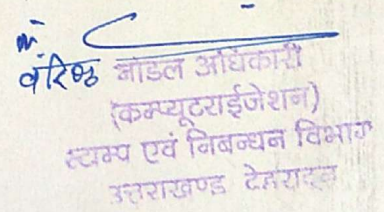 वरिष्ठ नोडल अधिकारी
(कम्प्यूटराईजेशन)
स्टाम्प एवं निबन्धन विभाग
उत्तराखण्ड देहरादून